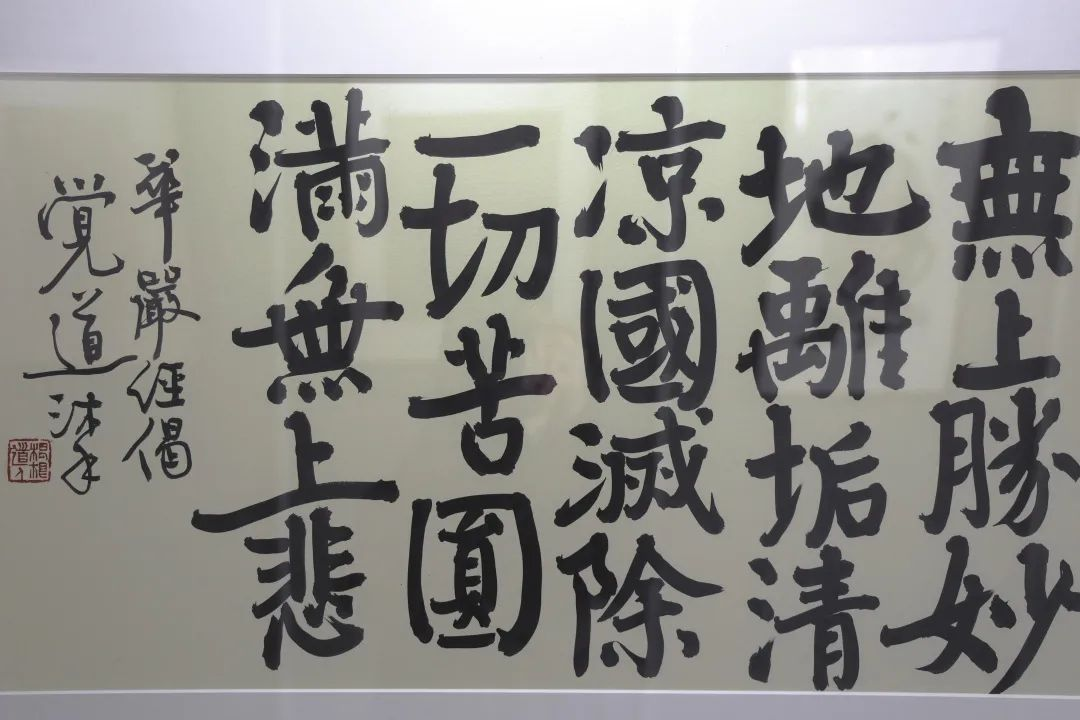 無上勝妙
地離垢清
凉國滅除
一切苦圓
滿無上悲
華嚴經偈
覺道沐手